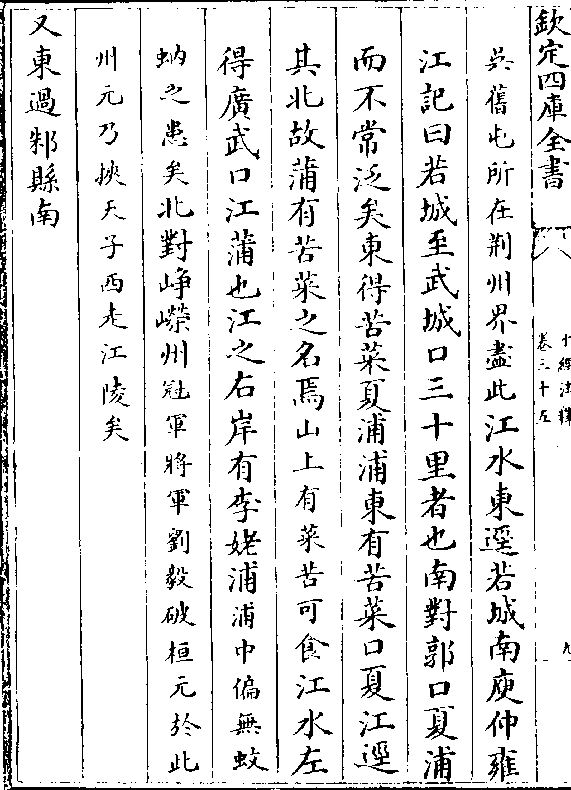 欽定四庫全書
水經注釋
卷三十五
九
吳舊屯所在荆州界盡此江水東逕若城南庾仲雍
江記曰若城至武城口三十里者也南對郭口夏浦
而不常泛矣東得苦菜夏浦浦東有苦菜口夏江逕
其北故蒲有苦菜之名焉山上有菜苦可食江水左
得廣武口江蒲也江之右岸有李姥浦浦中偏無蚊
蚋之患矣北對崢嶸州冠軍將軍劉毅破桓元於此
州元乃挾天子西走江陵矣
又東過邾縣南